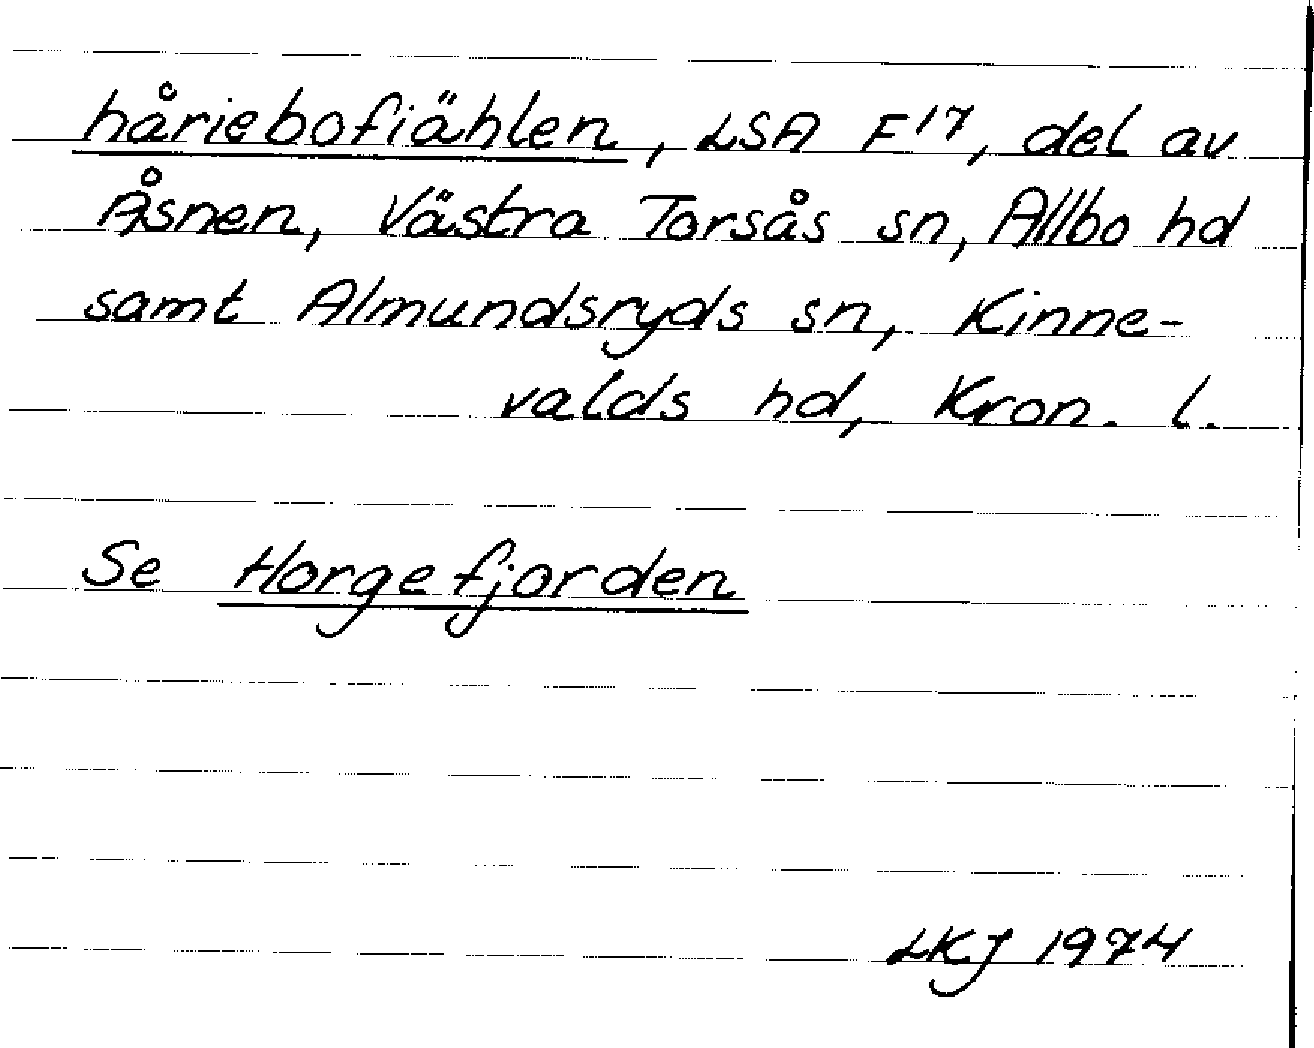 håriebofiählen, LSA F¹⁷, del av
Åsnen, Västra Torsås sn, Allbo hd
samt Almundsryds sn, Kinne-
valds hd, Kron. l.
Se Horgefjorden
LKJ 1974